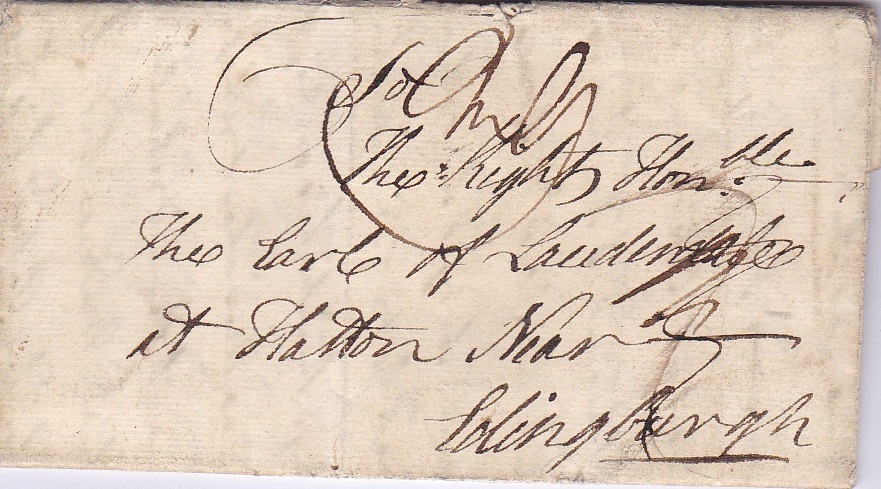 To
The Right Honble
The Earl of Lauderdale
at Hatton Near
Edingburgh